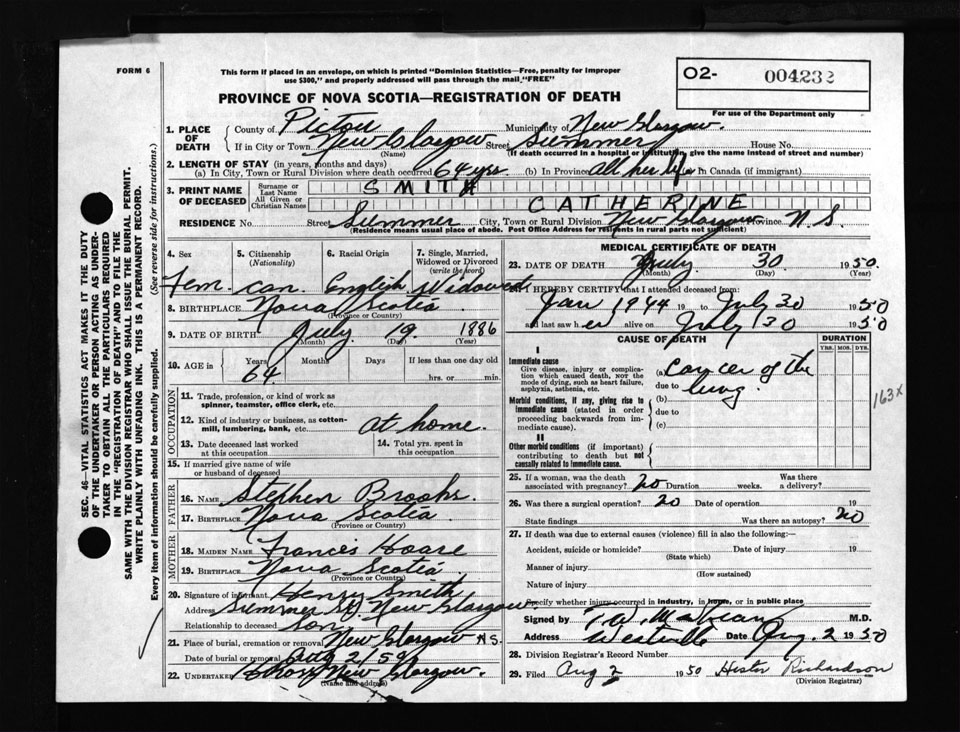 FORM 6
This form if placed in an envelope, on which is printed "Dominion Statistics—Free, penalty for improper
use $300," and properly addressed will pass through the mail "FREE"
O2- 004232
For use of the Department only
PROVINCE OF NOVA SCOTIA—REGISTRATION OF DEATH
SEC. 46—VITAL STATISTICS ACT MAKES IT THE DUTY
OF THE UNDERTAKER OR PERSON ACTING AS UNDER-
TAKER TO OBTAIN ALL THE PARTICULARS REQUIRED
IN THE "REGISTRATION OF DEATH" AND TO FILE THE
SAME WITH THE DIVISION REGISTRAR WHO SHALL ISSUE THE BURIAL PERMIT.
WRITE PLAINLY WITH UNFADING INK. THIS IS A PERMANENT RECORD.
Every item of information should be carefully supplied. (See reverse side for instructions.)
1. PLACE OF DEATH
County of Pictou Municipality of New Glasgow.
If in City or Town New Glasgow Street Summer House No.
(Name) (If death occurred in a hospital or institution, give the name instead of street and number)
2. LENGTH OF STAY (in years, months and days)
(a) In City, Town or Rural Division where death occurred 64 yrs. (b) In Province All her life (c) In Canada (if immigrant)
3. PRINT NAME OF DECEASED
Surname or Last Name SMITH
All Given or Christian Names CATHERINE
RESIDENCE No. Street Summer City, Town or Rural Division New Glasgow Province N.S.
(Residence means usual place of abode. Post Office Address for residents in rural parts not sufficient)
4. Sex 5. Citizenship (Nationality) 6. Racial Origin 7. Single, Married, Widowed or Divorced (write the word)
Fem. can. English Widowed
8. BIRTHPLACE Nova Scotia
(Province or Country)
9. DATE OF BIRTH July 19 1886
(Month) (Day) (Year)
10. AGE in Years 64 Months Days If less than one day old
hrs. or min.
OCCUPATION
11. Trade, profession, or kind of work as
spinner, teamster, office clerk, etc.
12. Kind of industry or business, as cotten-
mill, lumbering, bank, etc. at home.
13. Date deceased last worked
at this occupation
14. Total yrs. spent in
this occupation
15. If married give name of wife
or husband of deceased
FATHER
16. NAME Stephen Brooks.
17. BIRTHPLACE Nova Scotia
(Province or Country)
MOTHER
18. MAIDEN NAME Francis Hoare
19. BIRTHPLACE Nova Scotia
(Province or Country)
20. Signature of informant Henry Smith
Address Summer St. New Glasgow
Relationship to deceased Son.
21. Place of burial, cremation or removal New Glasgow N.S.
Date of burial or removal Aug 2/50
22. Undertaker New Glasgow.
(Name and address)
MEDICAL CERTIFICATE OF DEATH
23. DATE OF DEATH July 30 1950.
(Month) (Day) (Year)
I HEREBY CERTIFY that I attended deceased from:
Jan 1944 19 to July 30 1950
and last saw her alive on July 30 1950
CAUSE OF DEATH
DURATION
YRS. MOS. DYS.
I
Immediate cause
Give disease, injury or complica-
tion which caused death, NOT the
mode of dying, such as heart failure,
asphyxia, asthenia, etc.
(a) Cancer of the
due to lung
Morbid conditions, if any, giving rise to
immediate cause (stated in order
proceeding backwards from im-
mediate cause).
(b)
due to
(c)
163x
II
Other morbid conditions (if important)
contributing to death but not
causally related to immediate cause.
25. If a woman, was the death
associated with pregnancy? no Duration weeks. Was there
a delivery?
26. Was there a surgical operation? no Date of operation 19
State findings Was there an autopsy? no
27. If death was due to external causes (violence) fill in also the following:—
Accident, suicide or homicide? Date of injury 19
(State which)
Manner of injury
(How sustained)
Nature of injury
Specify whether injury occurred in industry, in home, or in public place
Signed by M.D.
Address Westville Date Aug. 2 1950
28. Division Registrar's Record Number
29. Filed Aug 2 1950 Hester Richardson
(Division Registrar)